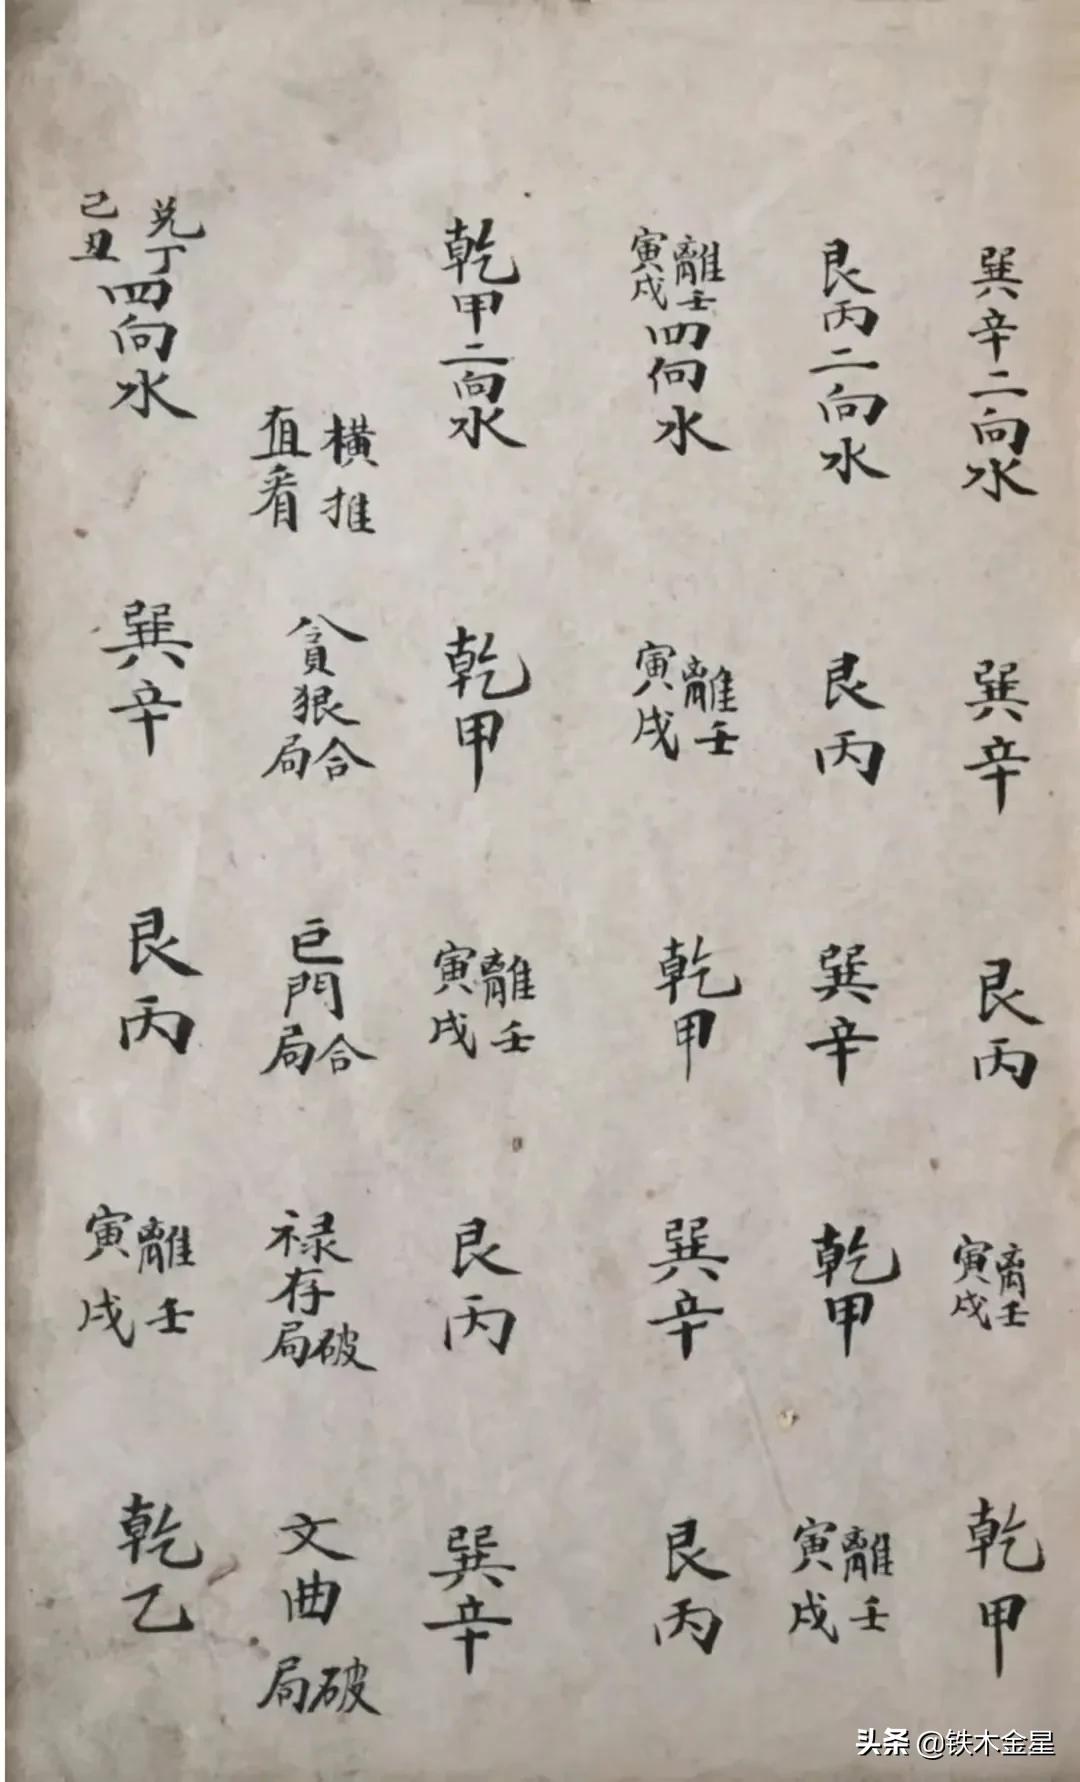 巽辛二向水
巽辛
艮丙
離壬
寅戌
乾甲
艮丙二向水
艮丙
巽辛
乾甲
離壬
寅戌
離壬
寅戌
四向水
離壬
寅戌
乾甲
巽辛
艮丙
乾甲二向水
乾甲
離壬
寅戌
艮丙
巽辛
橫推
直看
貪狠
合局
巨門
合局
禄存
破局
文曲
破局
兊丁
己丑
四向水
巽辛
艮丙
離壬
寅戌
乾乙
头条 @铁木金星